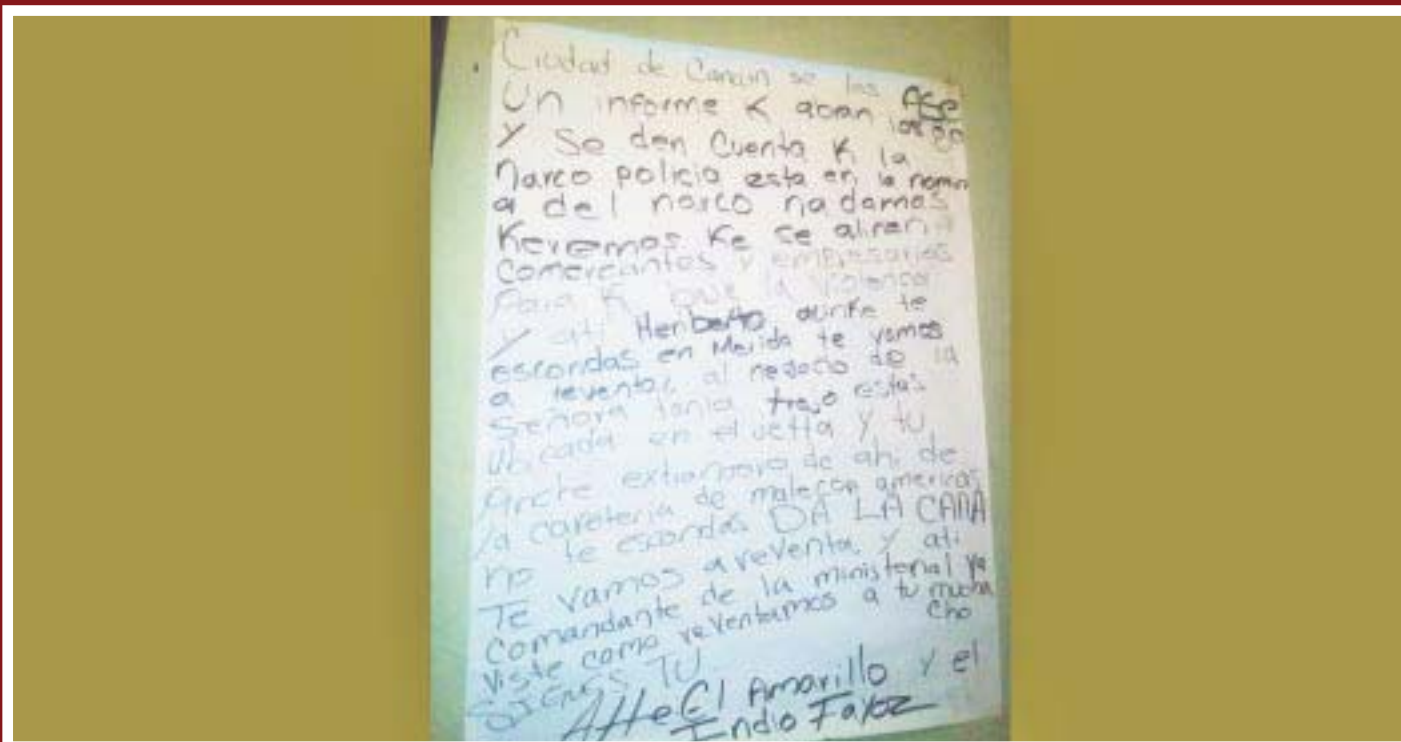 Ciudad de Cancun se les ASe
Un informe K abran los ojo
Y Se den Cuenta K la
Narco policia esta en la nomin
a del narco na damas
Keremos Ke se alinen
Comercantes y empresarios
Para K baje la violencia
Y ati Heriberto aunke te
escondas en Merida te vamos
a reventar al negocio de la
Señora tania trejo estas
Ubicada en el jetta y tu
extranjero de ahi de
la cafeteria de malecon americas
no te escondas DA LA CARA
Te vamos a reventa y ati
Comandante de la ministerial ya
Viste como reventamos a tu mucha
cho
SIGUES TU
Atte El Amarillo y el
Indio